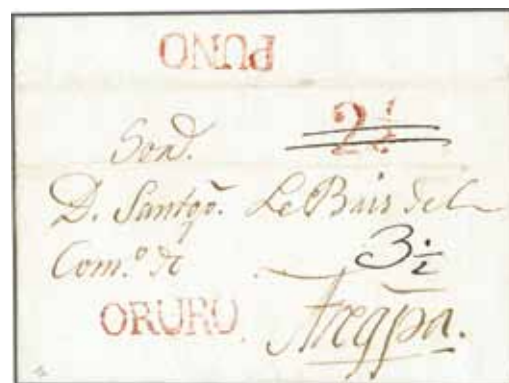 PUNO
2½
Sor D.
D. Santgo. Le Bris del
Como. de 3½
ORURO Areqpa.